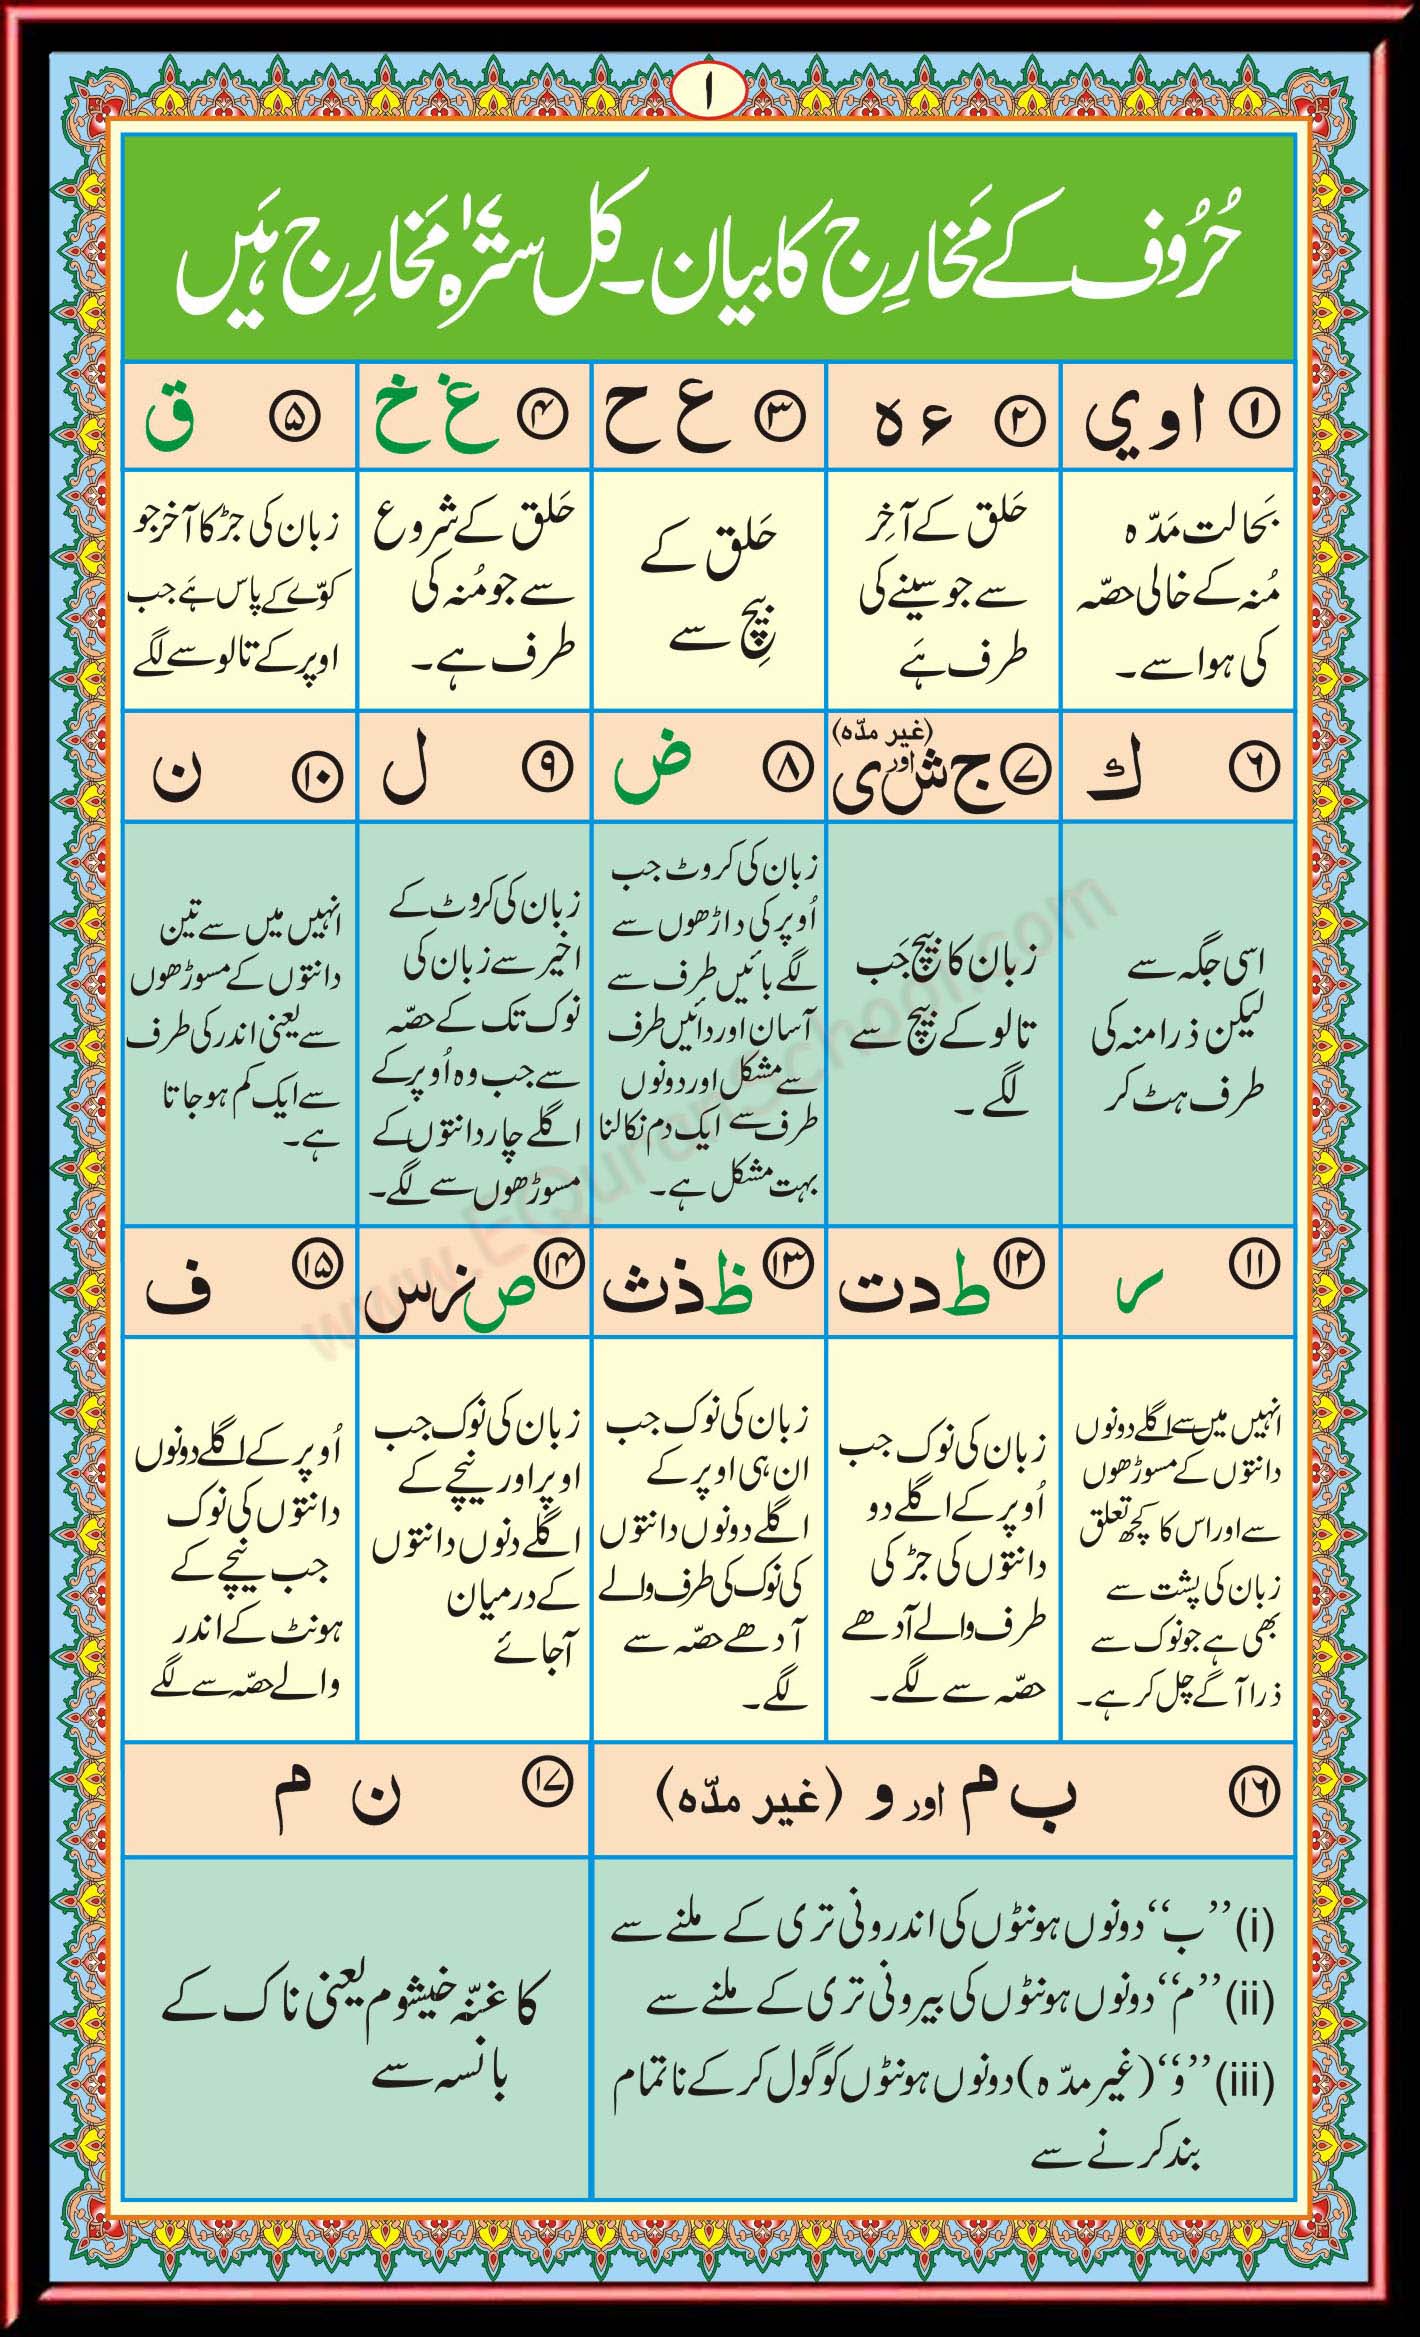 ۱
حُرُوف کے مَخارِج کا بیان۔ کل سترہ ۱۷ مَخارِج ہَیں
۱ ا و ي
بَحالت مَدّہ
مُنہ کے خالی حصّہ
کی ہوا سے۔
۲ ء ہ
حَلق کے آخِر
سے جو سینے کی
طرف ہَے
۳ ع ح
حَلق کے
بِیچ سے
۴ غ خ
حَلق کے شروع
سے جو مُنہ کی
طرف ہے۔
۵ ق
زبان کی جڑ کا آخر جو
کوّے کے پاس ہَے جب
اوپر کے تالو سے لگے
۶ ك
اسی جگہ سے
لیکن ذرا منہ کی
طرف ہٹ کر
۷ ج ش اور ی (غیر مدّہ)
زبان کا بیچ جَب
تالو کے بیچ سے
لگے۔
۸ ض
زبان کی کروٹ جب
اُوپر کی داڑھوں سے
لگے بائیں طرف سے
آسان اور دائیں طرف
سے مشکل اور دونوں
طرف سے ایک دم نکالنا
بہت مشکل ہے۔
۹ ل
زبان کی کروٹ کے
اخیر سے زبان کی
نوک تک کے حصّہ
سے جب وہ اُوپر کے
اگلے چار دانتوں کے
مسوڑھوں سے لگے۔
۱۰ ن
انہیں میں سے تین
دانتوں کے مسوڑھوں
سے یعنی اندر کی طرف
سے ایک کم ہو جاتا
ہے۔
۱۱ ر
انہیں میں سے اگلے دونوں
دانتوں کے مسوڑھوں
سے اور اس کا کچھ تعلق
زبان کی پشت سے
بھی ہے جو نوک سے
ذرا آگے چل کر ہے۔
۱۲ ط د ت
زبان کی نوک جب
اُوپر کے اگلے دو
دانتوں کی جڑ کی
طرف والے آدھے
حصّہ سے لگے۔
۱۳ ظ ذ ث
زبان کی نوک جب
ان ہی اوپر کے
اگلے دونوں دانتوں
کی نوک کی طرف والے
آدھے حصّہ سے
لگے۔
۱۴ ص ز س
زبان کی نوک جب
اوپر اور نیچے کے
اگلے دنوں دانتوں
کے درمیان
آجائے
۱۵ ف
اُوپر کے اگلے دونوں
دانتوں کی نوک
جب نیچے کے
ہونٹ کے اندر
والے حصّہ سے لگے
۱۶ ب م اور و (غیر مدّہ)
(i) ”ب“ دونوں ہونٹوں کی اندرونی تری کے ملنے سے
(ii) ”م“ دونوں ہونٹوں کی بیرونی تری کے ملنے سے
(iii) ”و“ (غیر مدّہ) دونوں ہونٹوں کو گول کر کے ناتمام
بند کرنے سے
۱۷ ن م
کا غنّہ خیشوم یعنی ناک کے
بانسہ سے
www.EQuranSchool.com